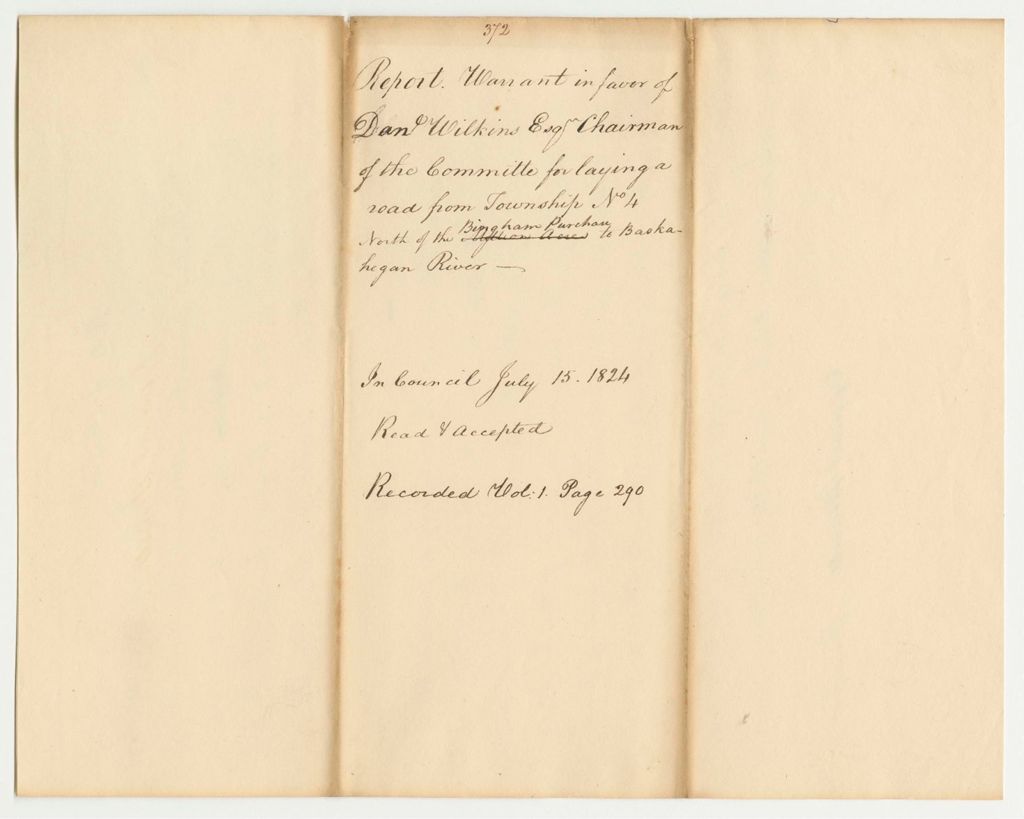 372
Report. Warrant in favor of
Danl Wilkins Esqr Chairman
of the Committe for laying a
road from Township No 4
North of the Bingham Purchase to Baska-
hegan River —
In Council July 15. 1824
Read & Accepted
Recorded Vol: 1. Page 290